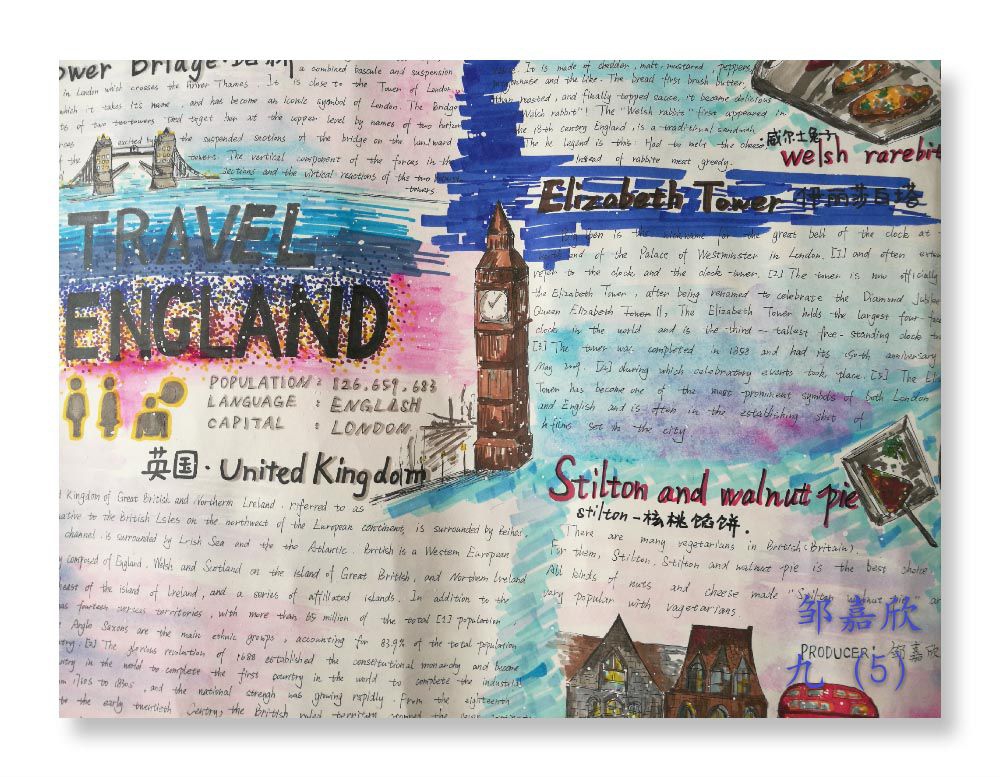 ower Bridge·
a combined bascule and suspension
in London which crosses the River Thames. It is close to the Tower of London,
which it takes its name, and has become an iconic symbol of London. The Bridge
ts of two towers tied together at the upper level by names of two horizon
the suspended sections of the bridge on the landward
towers. The vertical component of the forces in the
sections and the virtical reactions of the two
towers
TRAVEL
ENGLAND
POPULATION: 826.659.683
LANGUAGE : ENGLISH
CAPITAL : LONDON
英国·United Kingdom
d Kingdom of Great British and Northern Lreland, riferred to as
native to the British Lsles on the northwest of the European continent, is surrounded by
channel is surrounded by Lrish Sea and the the Atlantic. British is a Western European
composed of England, Welsh and Scotland on the island of Great British, and Northern Lreland
east of the island of Lreland, and a series of affiliated islands. In addition to the
fourteen territories, with more than 65 million of the total [1] population
Anglo Saxons are the main ethnic groups, accounting for 83.9% of the total population
The glorious revolution of 1688 established the constitutional monarchy and became
in the world to complete the first country in the world to complete the industrial
1710s to 1830s, and the national strengh was growing rapidly. From the eighteenth
to the early twentieth Century, the British ruled territory
It is made of cheddar, malt, mustard, peppers,
and the like. The bread first brush butter,
than roasted, and finally topped sauce, it became delicious
"Welsh rabbit"! The "Welsh rabbit" first appeared in
the 18th century England, is a traditional sandwich.
The legend is this: Had to melt the cheese,
instead of rabbite meat greedy.
威尔士兔子
welsh rarebit
Elizabeth Tower 伊丽莎白塔
Big Ben is the nickname for the great bell of the clock at
end of the Palace of Westminster in London, [1] and often exten
refer to the clock and the clock tower. [2] The tower is now officially
the Elizabeth Tower, after being renamed to celebrate the Diamond Jubilee
Queen Elizabeth II, The Elizabeth Tower holds the largest four-
clock in the world and is the third-tallest free-standing clock
[3] The tower was completed in 1858 and had its 150th anniversary
May 2009, [4] during which celebratory events took place. [5] The
Tower has become one of the most prominent symbols of both London
and English and is often in the establishing shot of
films set in the city
Stilton and walnut pie
stilton-核桃馅饼.
There are many vegetarians in British (Britain).
For them, Stilton, Stilton and walnut pie is the best choice
All kinds of nuts and cheese made "Stilton walnut pie" ar
very popular with vagetarians
邹嘉欣
PRODUCER: 邹嘉欣
九（5）